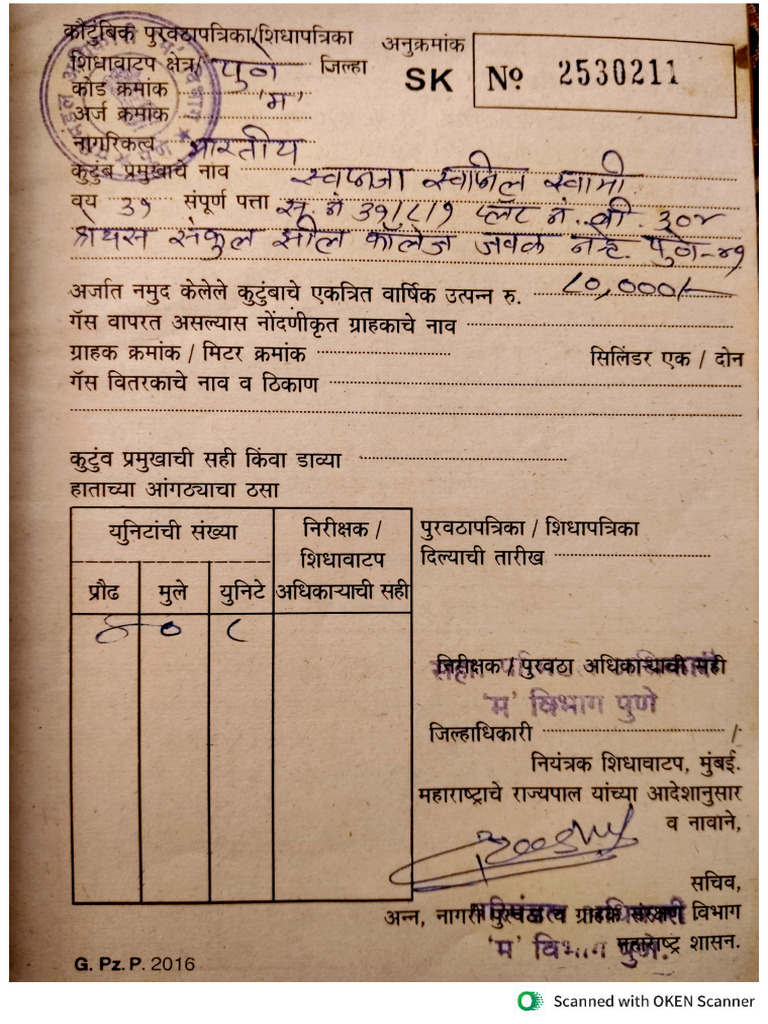 कौटुंबिक पुरवठापत्रिका/शिधापत्रिका अनुक्रमांक
शिधावाटप क्षेत्र/ पुणे जिल्हा SK Nº 2530211
कोड क्रमांक 'म'
अर्ज क्रमांक
नागरिकत्व भारतीय
कुटुंब प्रमुखाचे नांव स्वप्नजा स्वप्निल स्वामी
वय ३१ संपूर्ण पत्ता सू. नं ३१/८/१ फ्लॅट नं. बी. ३०४
श्रेयस संकुल सील कॉलेज जवळ नऱ्हे. पुणे-४१
अर्जात नमुद केलेले कुटुंबाचे एकत्रित वार्षिक उत्पन्न रु. ८०,०००/-
गॅस वापरत असल्यास नोंदणीकृत ग्राहकाचे नाव
ग्राहक क्रमांक / मिटर क्रमांक सिलिंडर एक / दोन
गॅस वितरकाचे नाव व ठिकाण
कुटुंव प्रमुखाची सही किंवा डाव्या
हाताच्या आंगठ्याचा ठसा
युनिटांची संख्या निरीक्षक / पुरवठापत्रिका / शिधापत्रिका
शिधावाटप दिल्याची तारीख
प्रौढ मुले युनिटे अधिकाऱ्याची सही
० ८
निरीक्षक / पुरवठा अधिकाऱ्याची सही
'म' विभाग पुणे
जिल्हाधिकारी /
नियंत्रक शिधावाटप, मुंबई.
महाराष्ट्राचे राज्यपाल यांच्या आदेशानुसार
व नावाने,
सचिव,
अन्न, नागरी पुरवठा व ग्राहक संरक्षण विभाग
'म' विभाग पुणे. महाराष्ट्र शासन.
G. Pz. P. 2016
Scanned with OKEN Scanner